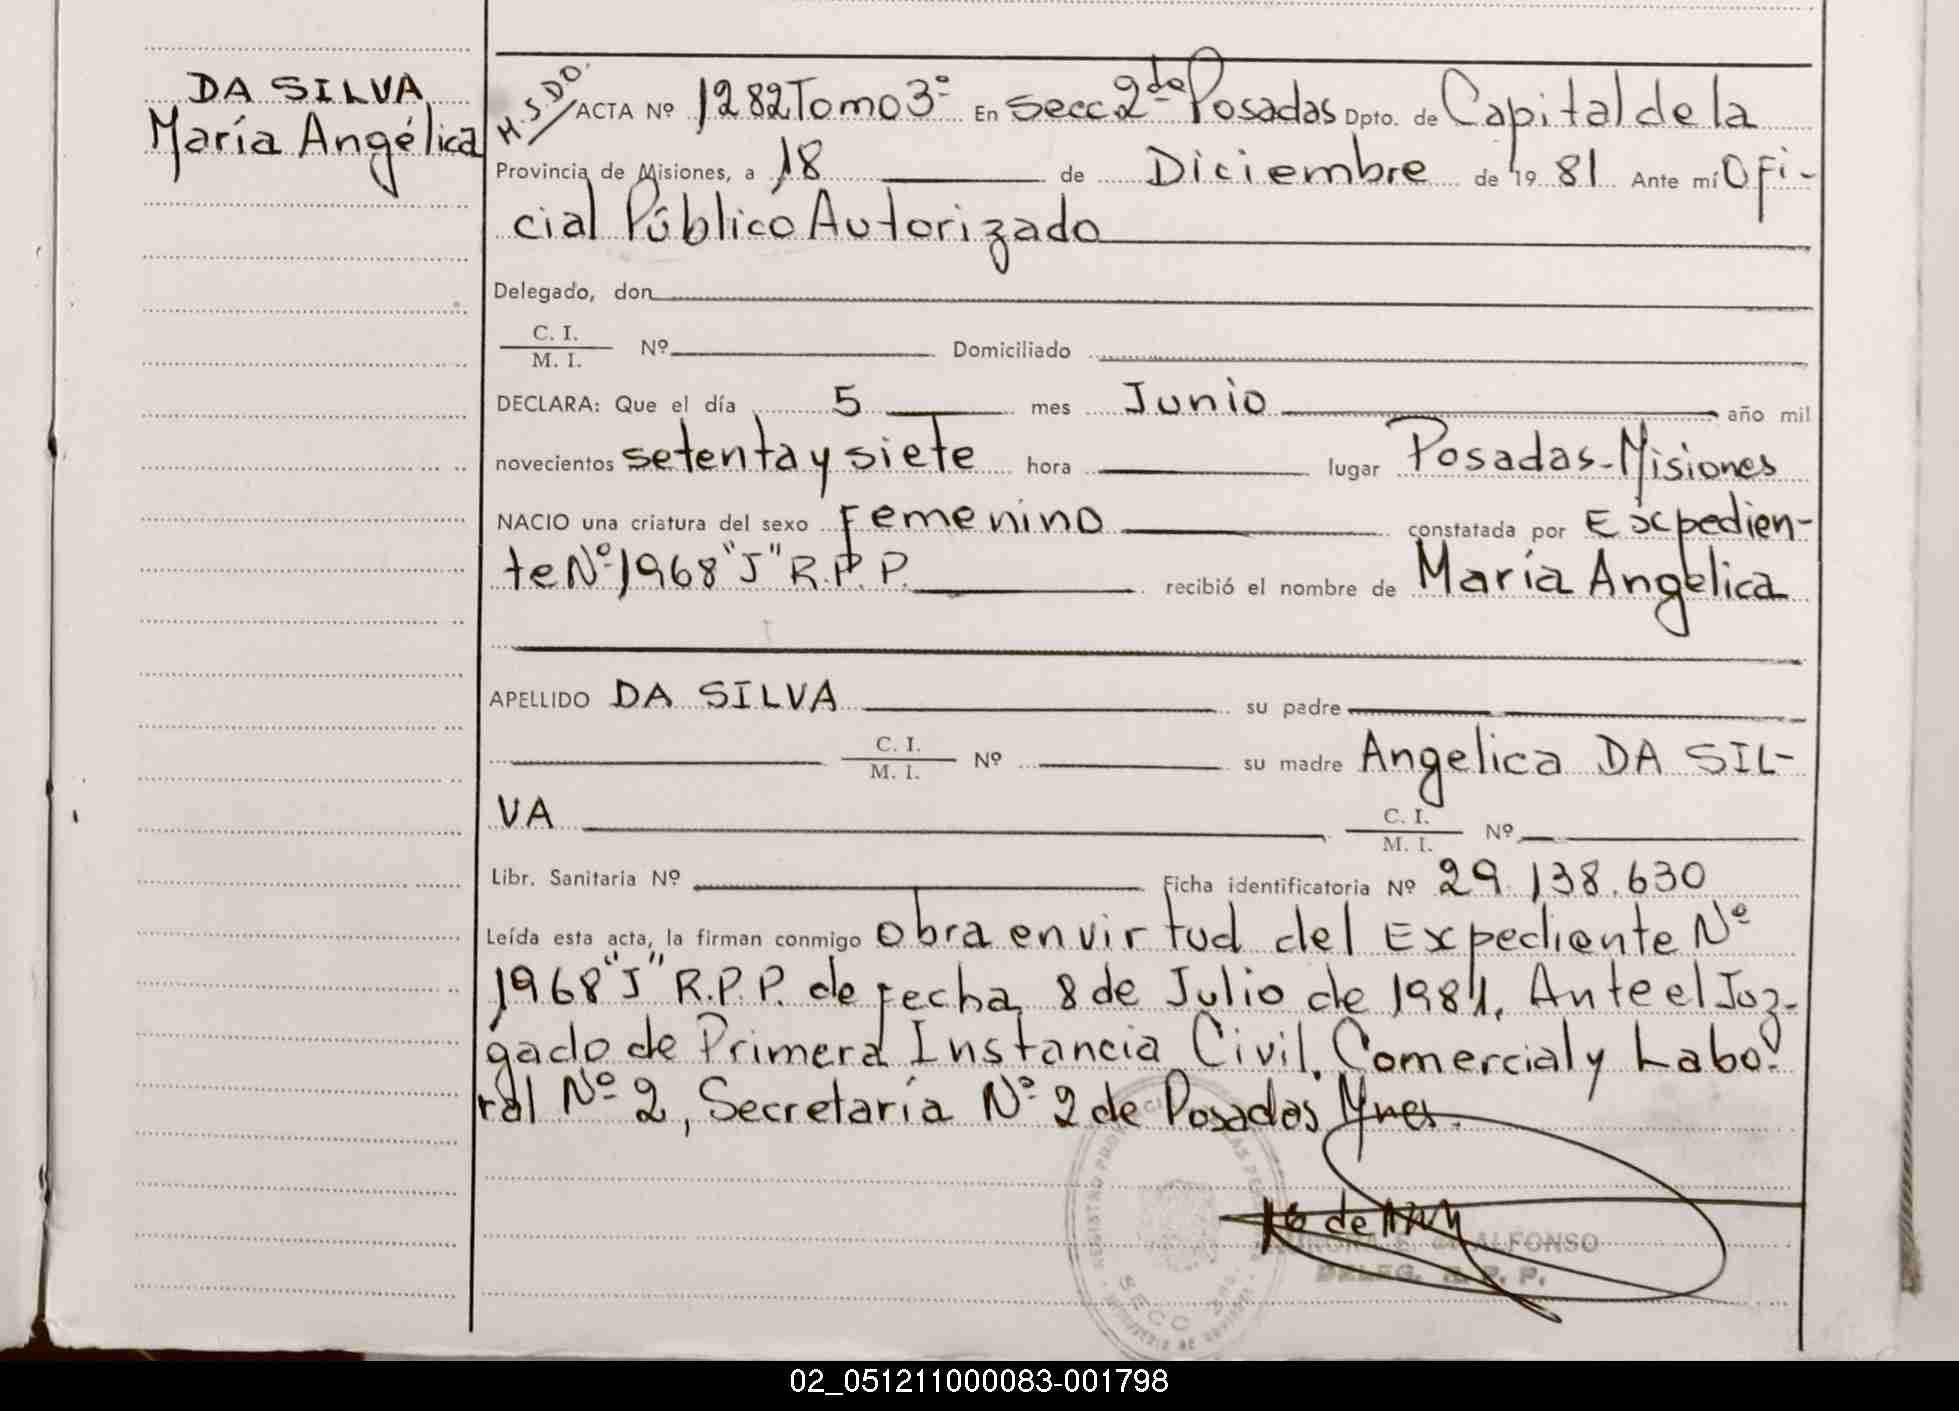 DA SILVA
María Angélica
M.S.DO.
ACTA Nº 1282 Tomo 3º En Secc 2da Posadas Dpto. de Capital de la
Provincia de Misiones, a 18 de Diciembre de 1981 Ante mí Ofi-
cial Público Autorizado
Delegado, don
C. I.
M. I. Nº Domiciliado
DECLARA: Que el día 5 mes Junio año mil
novecientos setenta y siete hora lugar Posadas-Misiones
NACIO una criatura del sexo Femenino constatada por Expedien-
te Nº 1968 "J" R.P.P. recibió el nombre de María Angelica
APELLIDO DA SILVA su padre
C. I.
M. I. Nº su madre Angelica DA SIL-
VA C. I.
M. I. Nº
Libr. Sanitaria Nº Ficha identificatoria Nº 29.138.630
Leída esta acta, la firman conmigo obra en virtud del Expediente Nº
1968 "J" R.P.P. de fecha 8 de Julio de 1981. Ante el Juz-
gado de Primera Instancia Civil, Comercial y Labo-
ral Nº 2, Secretaría Nº 2 de Posadas Mnes.
ALFONSO
DELEG. R. P. P.
SECC
02_051211000083-001798